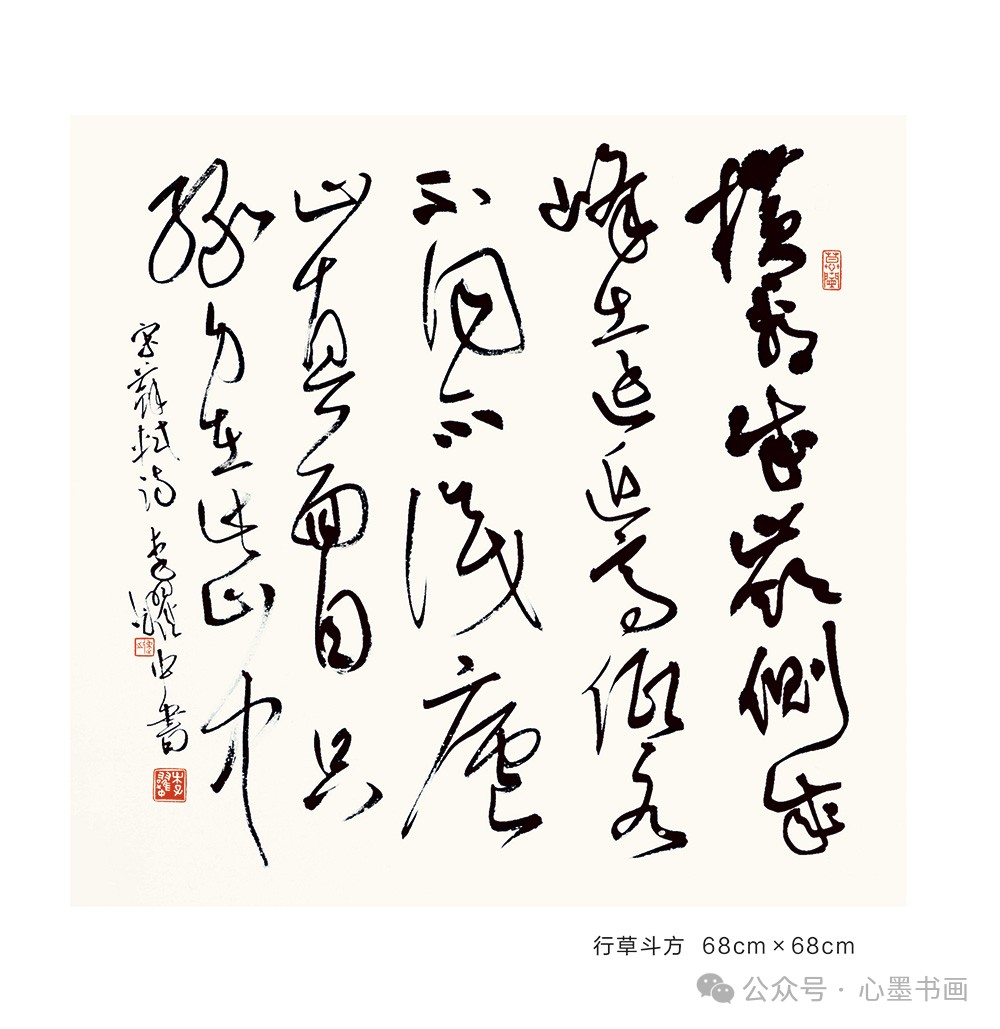 横看成岭侧成
峰远近高低各
不同不识庐
山真面目只
缘身在此山中
写苏轼诗
李躍中书
李躍中
行草斗方 68cm×68cm
公众号 · 心墨书画